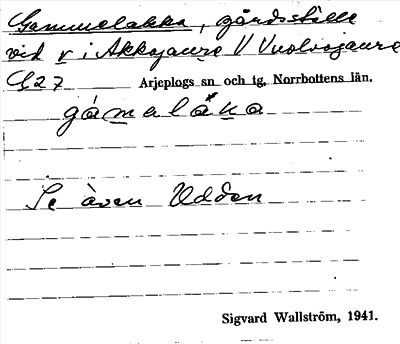 Gammelakka, gårdsställe
vid v i Akkajaure V Vuolvojaure
C27 Arjeplogs sn och tg, Norrbottens län.
gámaláka
Se även Udden
Sigvard Wallström, 1941.